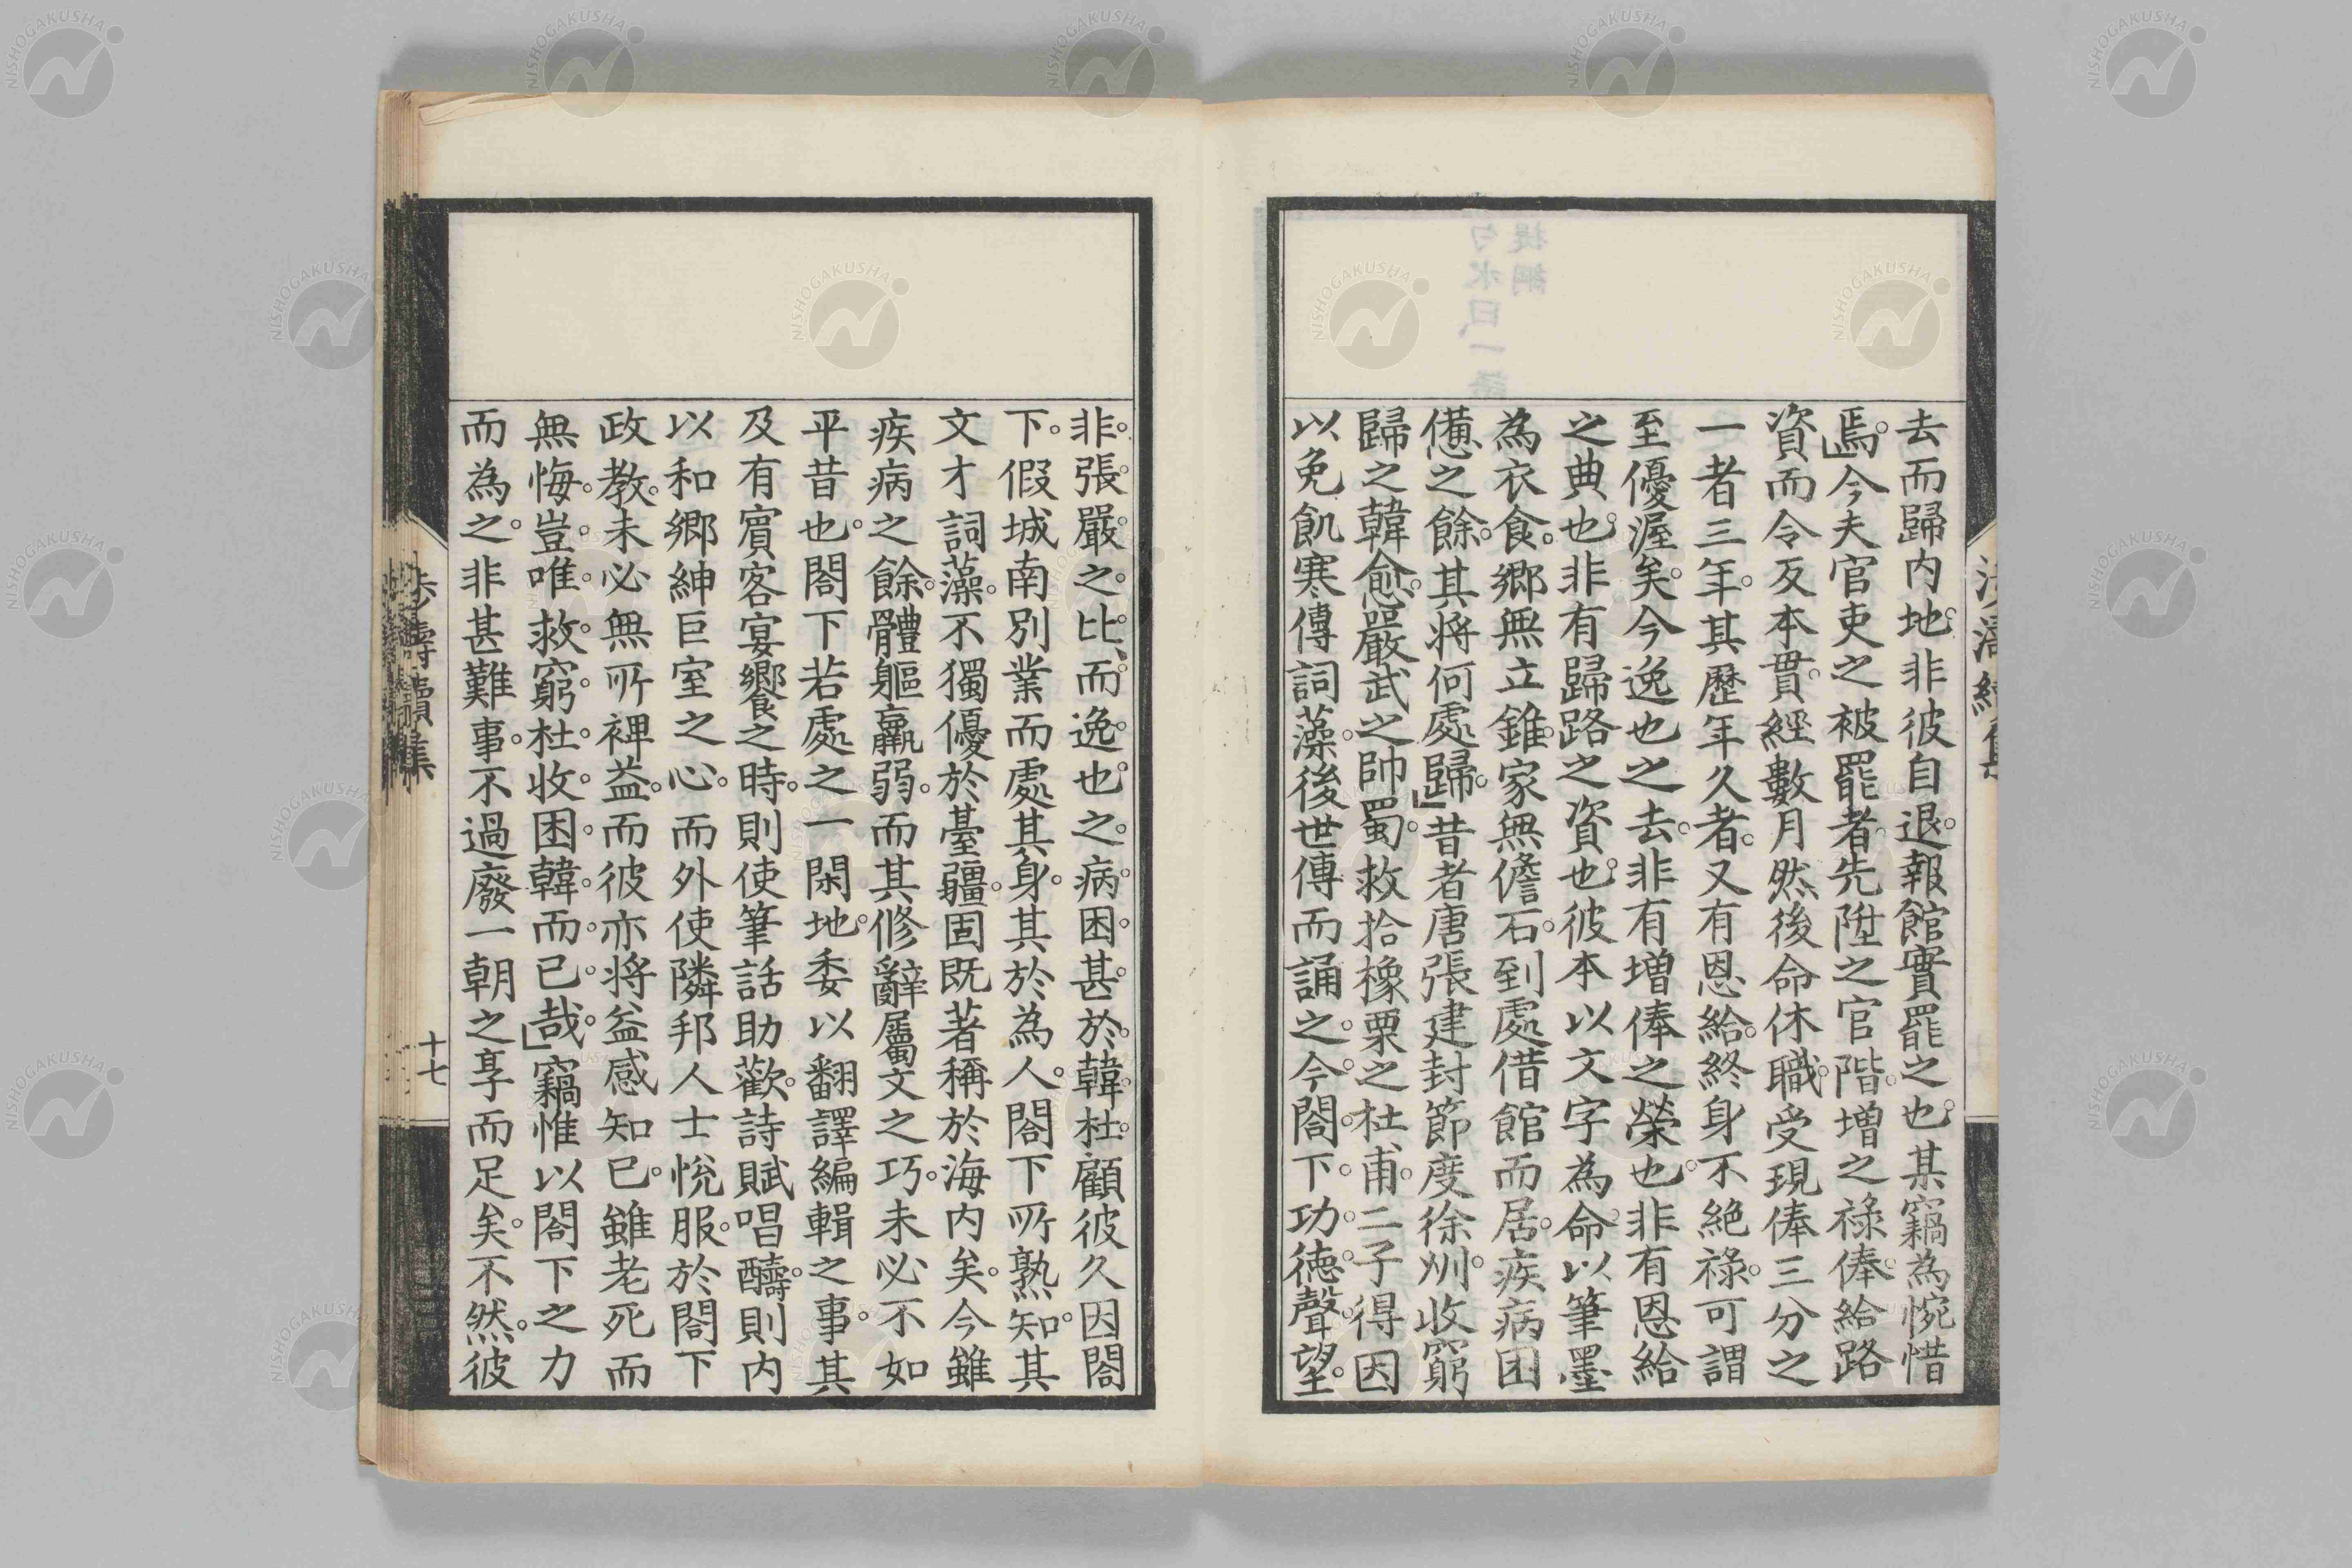 去而歸内地。非彼自退。報館實罷之也。某竊為惋惜
焉。」今夫官吏之被罷者。先陞之官階。增之祿俸。給路
資而令反本貫。經數月然後命休職。受現俸三分之
一者三年。其歷年久者。又有恩給。終身不絶祿。可謂
至優渥矣。今逸也之去。非有增俸之榮也。非有恩給
之典也。非有歸路之資也。彼本以文字為命。以筆墨
為衣食。鄉無立錐。家無儋石。到處借館而居。疾病困
憊之餘。其将何處歸。」昔者唐張建封節度徐州。收窮
歸之韓愈。嚴武之帥蜀。救拾橡栗之杜甫。二子得因
以免飢寒。傳詞藻。後世傳而誦之。今閤下。功德聲望。
非。張。嚴。之。比、而。逸。也。之。病。困。甚。於。韓。杜。顧彼久因閤
下。假城南別業而處其身。其於為人。閤下所熟知。其
文才詞藻。不獨優於臺疆。固既著稱於海内矣。今雖
疾病之餘。體軀羸弱。而其修辭屬文之巧。未必不如
平昔也。閤下若處之一閑地。委以翻譯編輯之事。其
及有賓客宴饗之時。則使筆話助歡。詩賦唱醻。則内
以和鄉紳巨室之心。而外使隣邦人士悦服。於閤下
政教。未必無所裨益。而彼亦将益感知已。雖老死而
無悔。豈。唯。救。窮。杜。收。困。韓。而。已。哉。」竊惟以閤下之力
而為之。非甚難事。不過廢一朝之享而足矣。不然。彼
十七